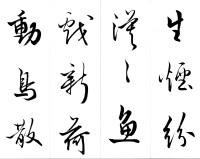 生煙紛
漠〻魚
戲新荷
動鳥散